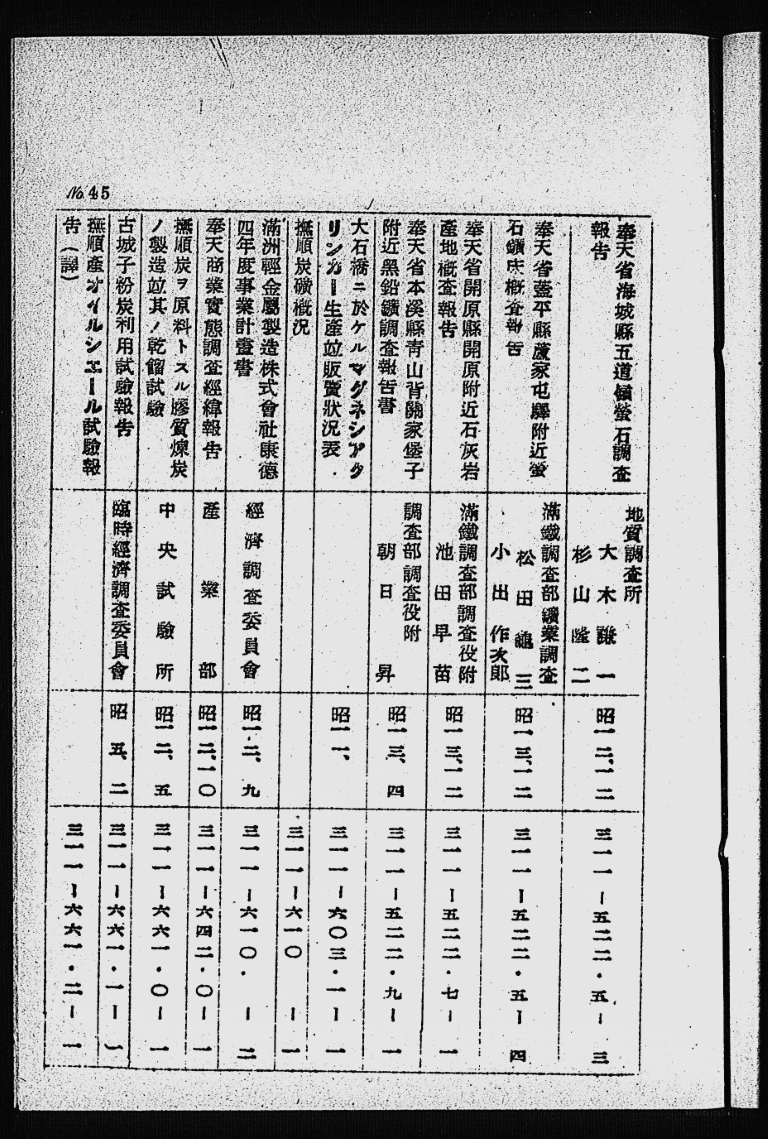 No. 45
奉天省海城縣五道嶺螢石調査
報告
地質調査所
大木謙一
杉山隆二
昭一二、一二
三一一-五二二・五-三
奉天省蓋平縣蘆家屯驛附近螢
石鑛床概査報告
滿鐵調査部鑛業調査
松田龜三
小出作次郎
昭一三、一二
三一一-五二二・五-四
奉天省開原縣開原附近石灰岩
產地概査報告
滿鐵調査部調査役附
池田早苗
昭一三、一二
三一一-五二二・七-一
奉天省本溪縣靑山背關家堡子
附近黑鉛鑛調査報吿書
調査部調査役附
朝日昇
昭一三、四
三一一-五二二・九-一
大石橋ニ於ケルマグネシアク
リンカー生產竝販賣狀況表
昭一一、
三一一-六〇三・一-一
撫順炭礦槪況
三一一-六一〇-一
滿洲輕金屬製造株式會社康德
四年度事業計畫書
經濟調査委員會
昭一二、九
三一一-六一〇・-二
奉天商業實態調査經緯報吿
產業部
昭一二、一〇
三一一-六四二・〇-一
撫順炭ヲ原料トスル膠質煉炭
ノ製造竝其ノ乾餾試驗
中央試驗所
昭一二、五
三一一-六六一・〇-一
古城子粉炭利用試驗報吿
臨時經濟調査委員會
昭五、二
三一一-六六一・一-一
撫順產オイルシエール試驗報
吿(譯)
三一一-六六一・二-一